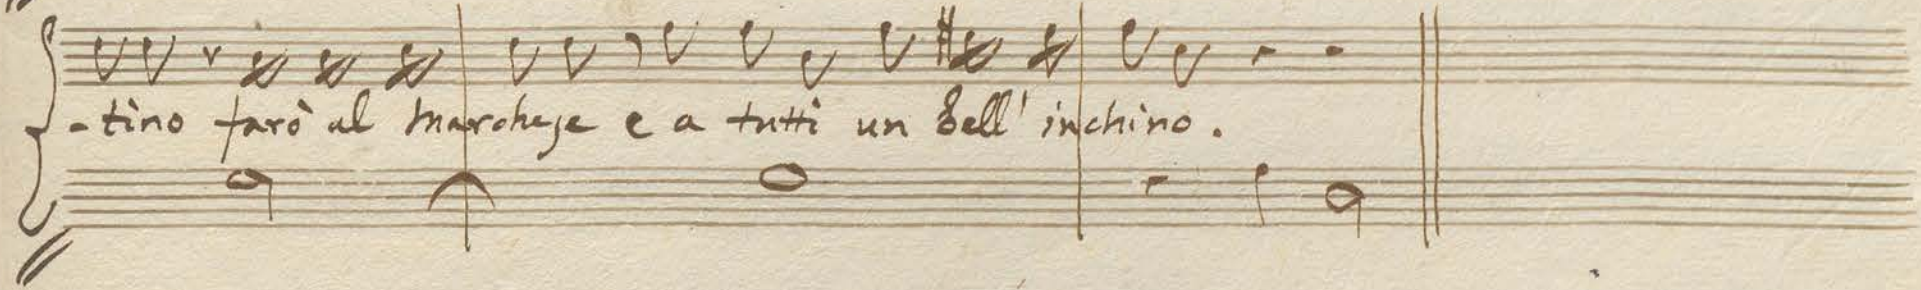 -tino farò al Marchese e a tutti un bell' inchino.